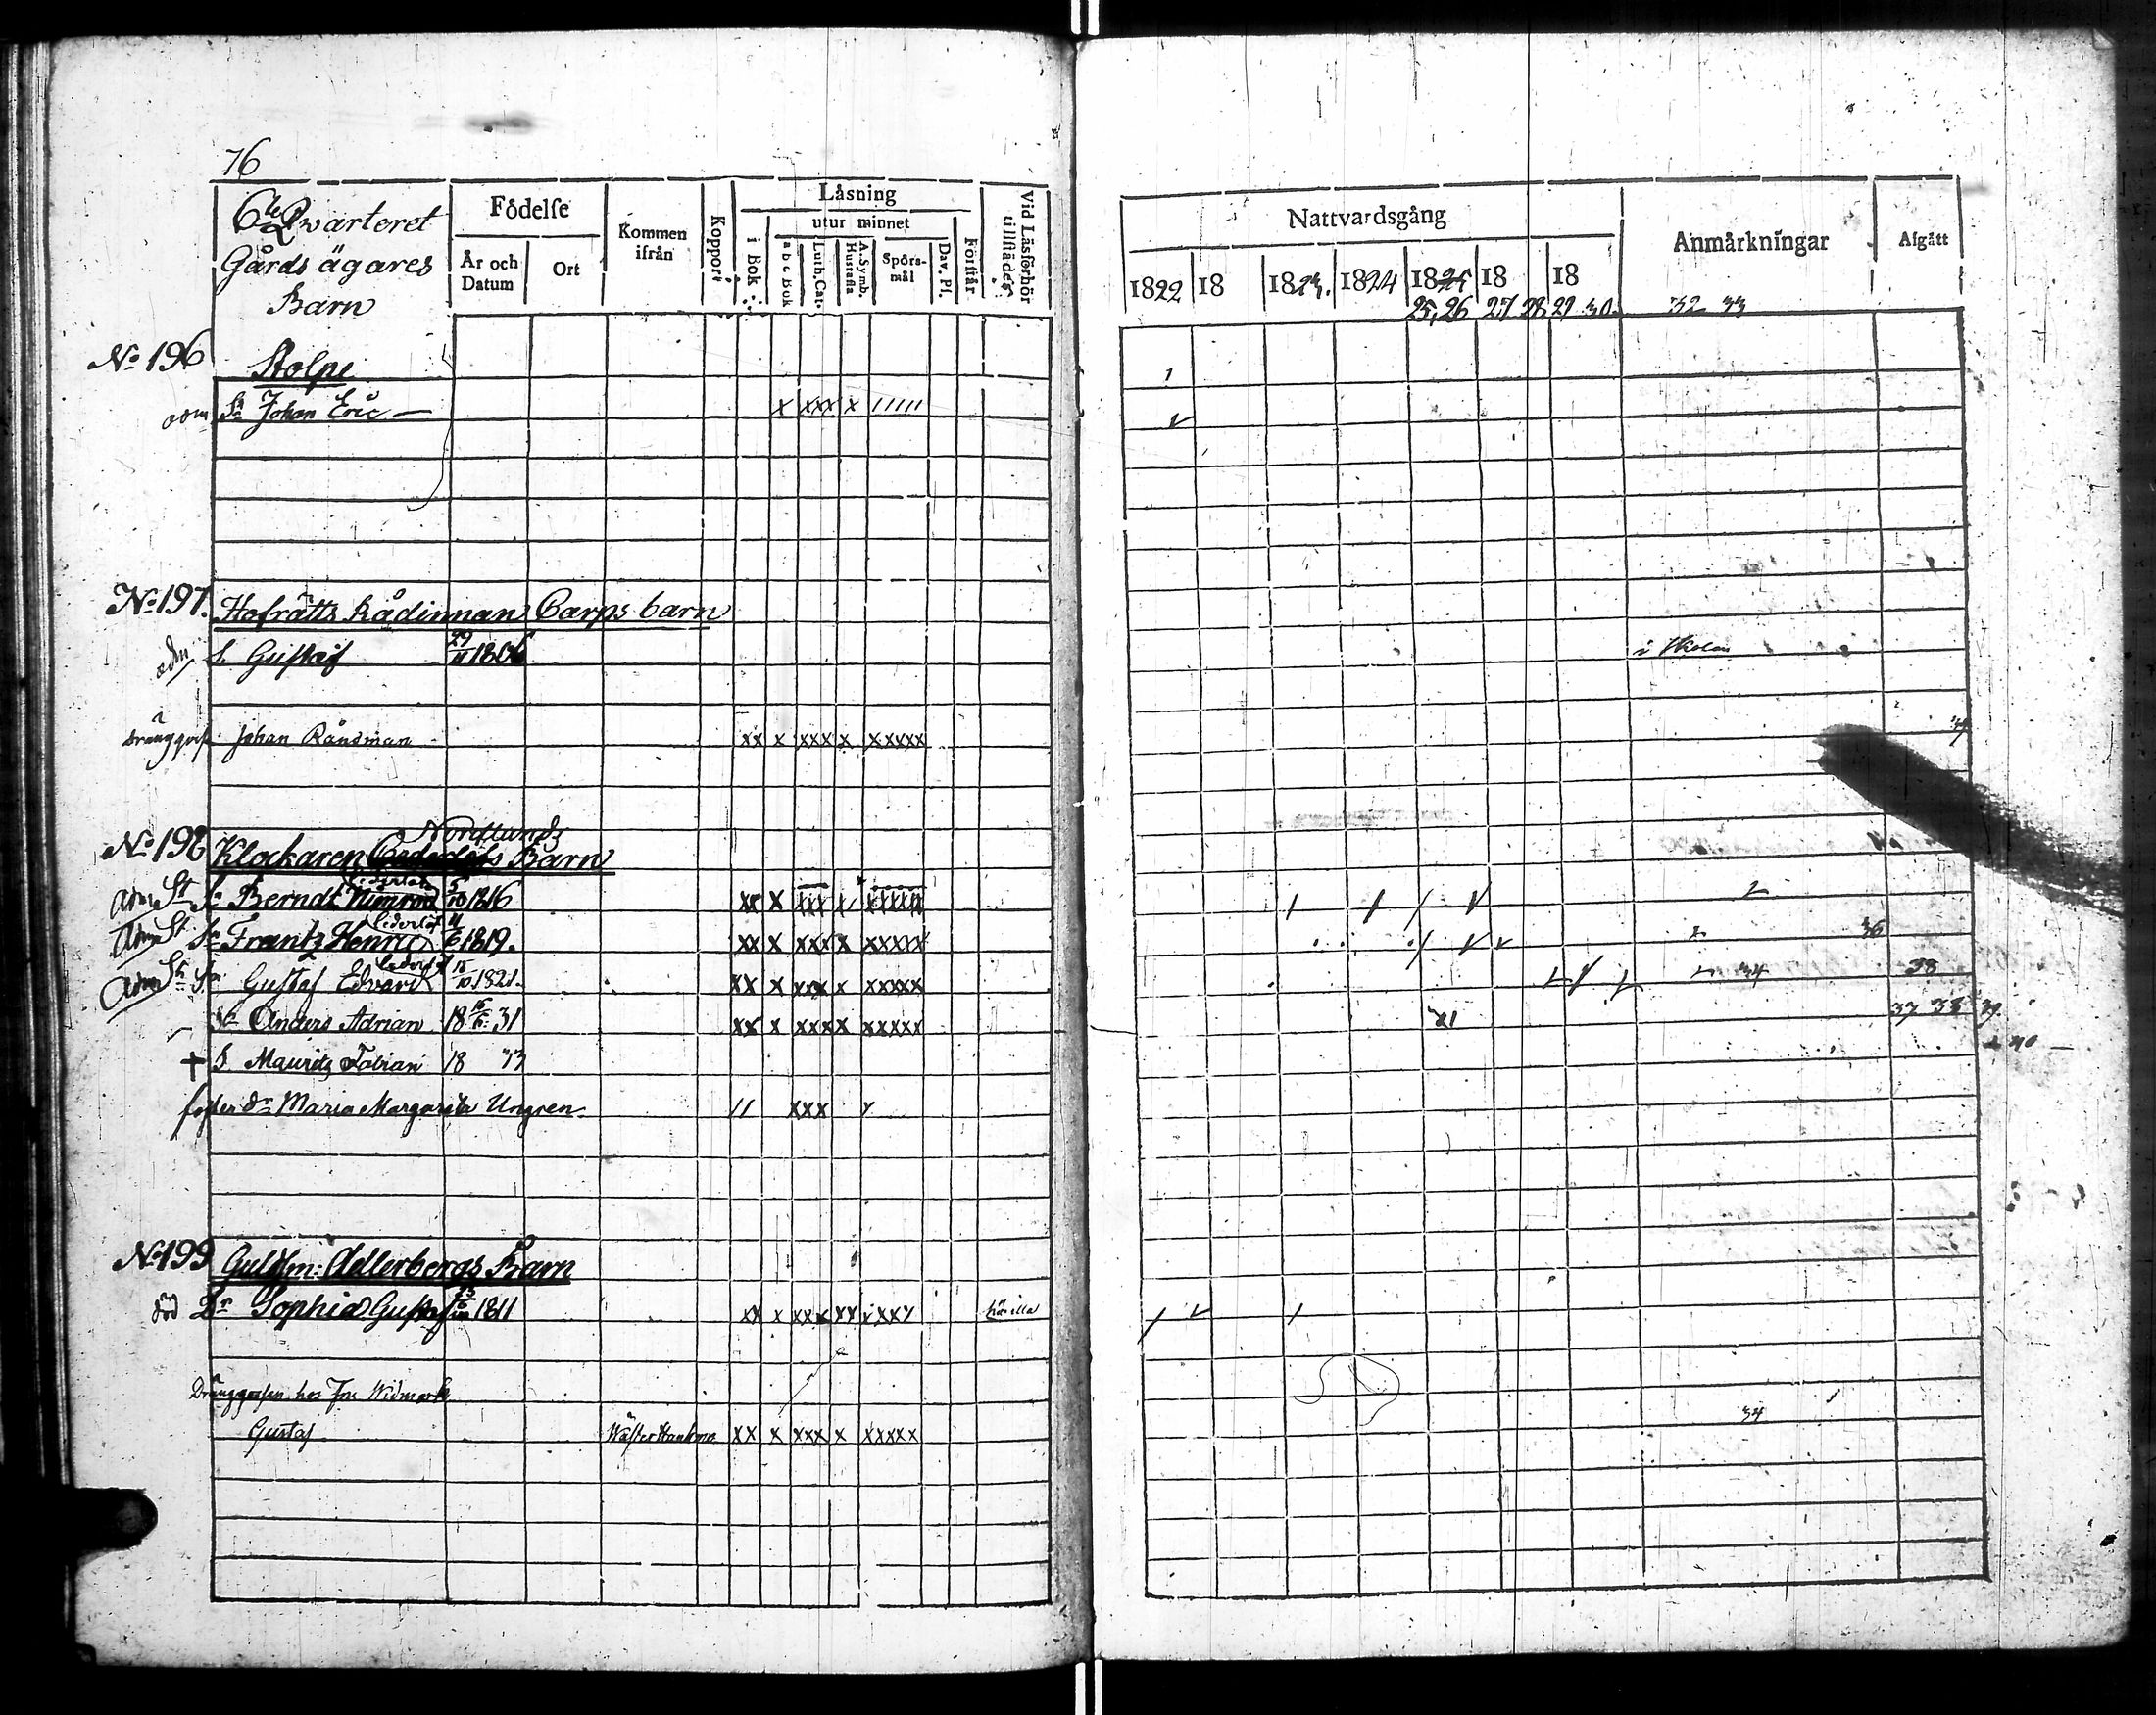 76
6te Qwarteret
Gårds ägares
Barn
Födelse
År och Datum
Ort
Kommen ifrån
Koppor
Läsning
i Bok
utur minnet
a b c Bok
Luth. Cat.
A. Symb. Hustafla
Spörs-mål
Dav. Ps.
Förstår
Vid Läsförhör tillstädes
Nattvardsgång
1822 18 1823. 1824 1825 18 18
25, 26 27 28 29 30.
Anmärkningar
32 33
Afgått
No 196 Stolpe
adm Sn Johan Eric
x xxx x /////
No 197. Hofrätts Rådinnan Carps barn
adm S. Gustaf 29/11 1806
i Skolan
Johan Råndman xx x xxx x xxxxx
No 198 Klockaren Nordlunds Barn
Adm St Sn Berndt Nimrod Cederlöf 5/10 1816 xx x xxx x xxxxx
Adm St Sn Frantz Henric Cederlöf 11/6 1819. xx x xxx x xxxxx 36
Adm St Sn Gustaf Edvard Cederlöf 15/10 1821. xx x xxx x xxxxx 34 38
Sn Anders Adrian 18 16/6 31 xx x xxx x xxxxx 37 38 39
+ S. Mauritz Fabian 18 33 40
foster dr Maria Margareta Ungren // xxx
No 199 Guldsm: Adlerbergs Barn
död Dr Sophia Gustafva 1811 xx x xxx xx xxxx
Dränggossen hos Fru Widmark
Gustaf xx x xxx x xxxxx 34